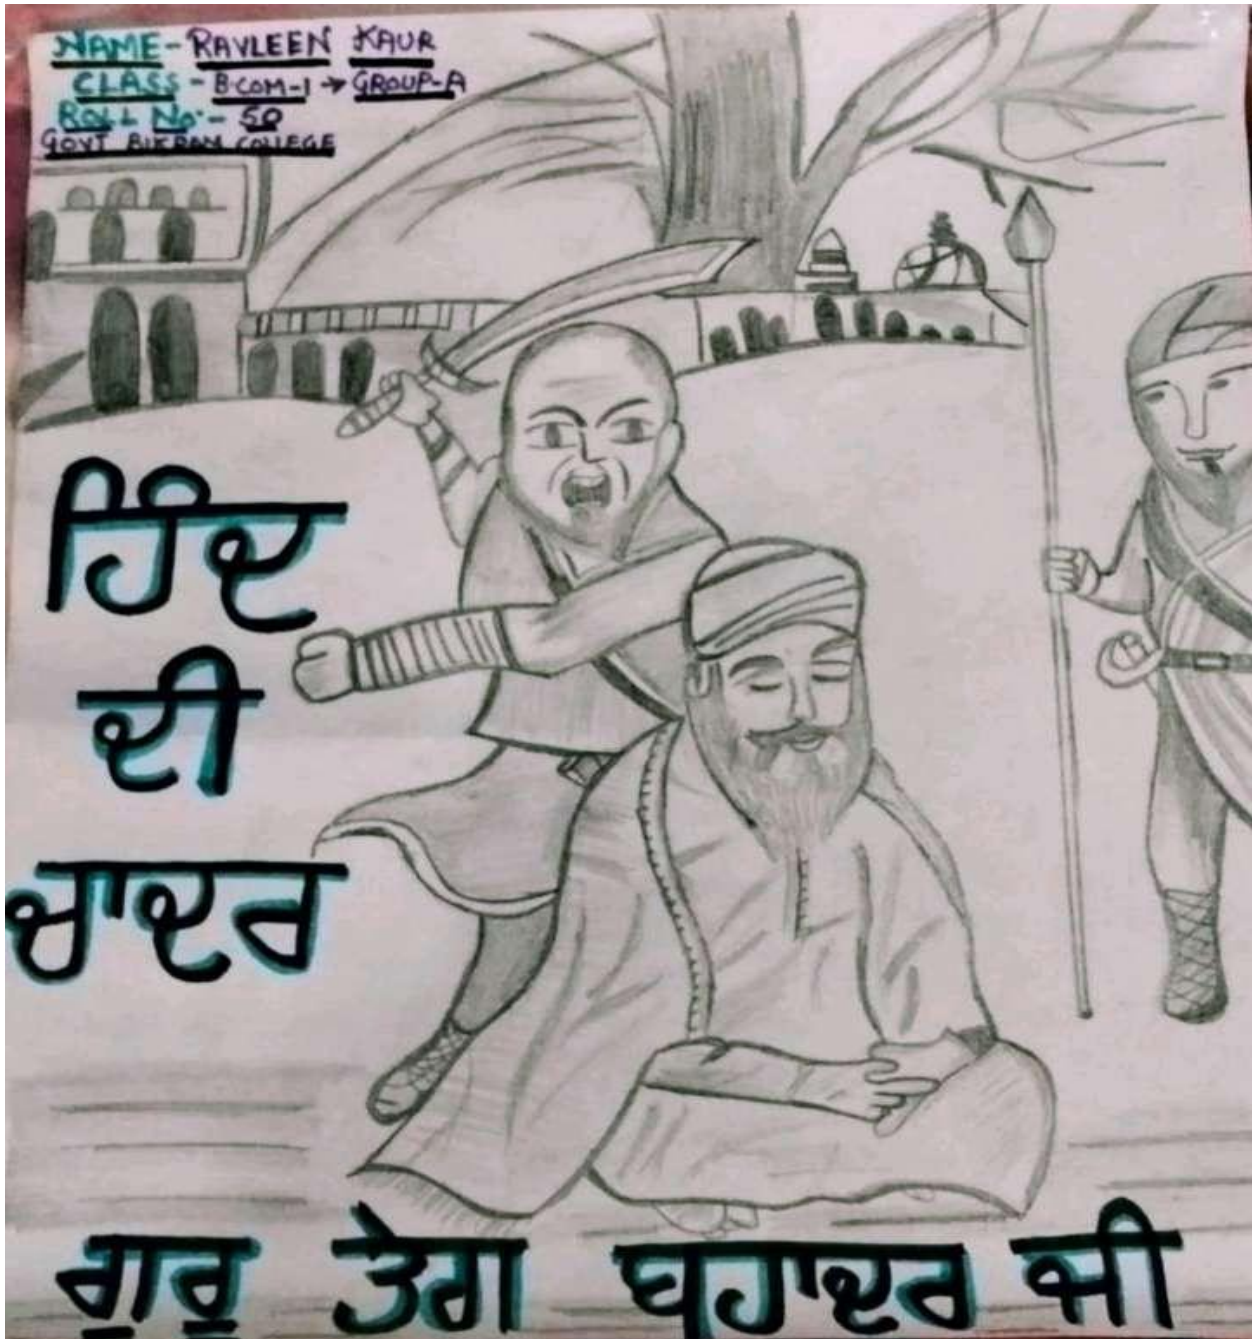 NAME - RAVLEEN KAUR
CLASS - B.COM-1 → GROUP-A
ROLL No. - 50
GOVT BIKRAM COLLEGE
ਹਿੰਦ
ਦੀ
ਚਾਦਰ
ਗੁਰੂ ਤੇਗ ਬਹਾਦਰ ਜੀ